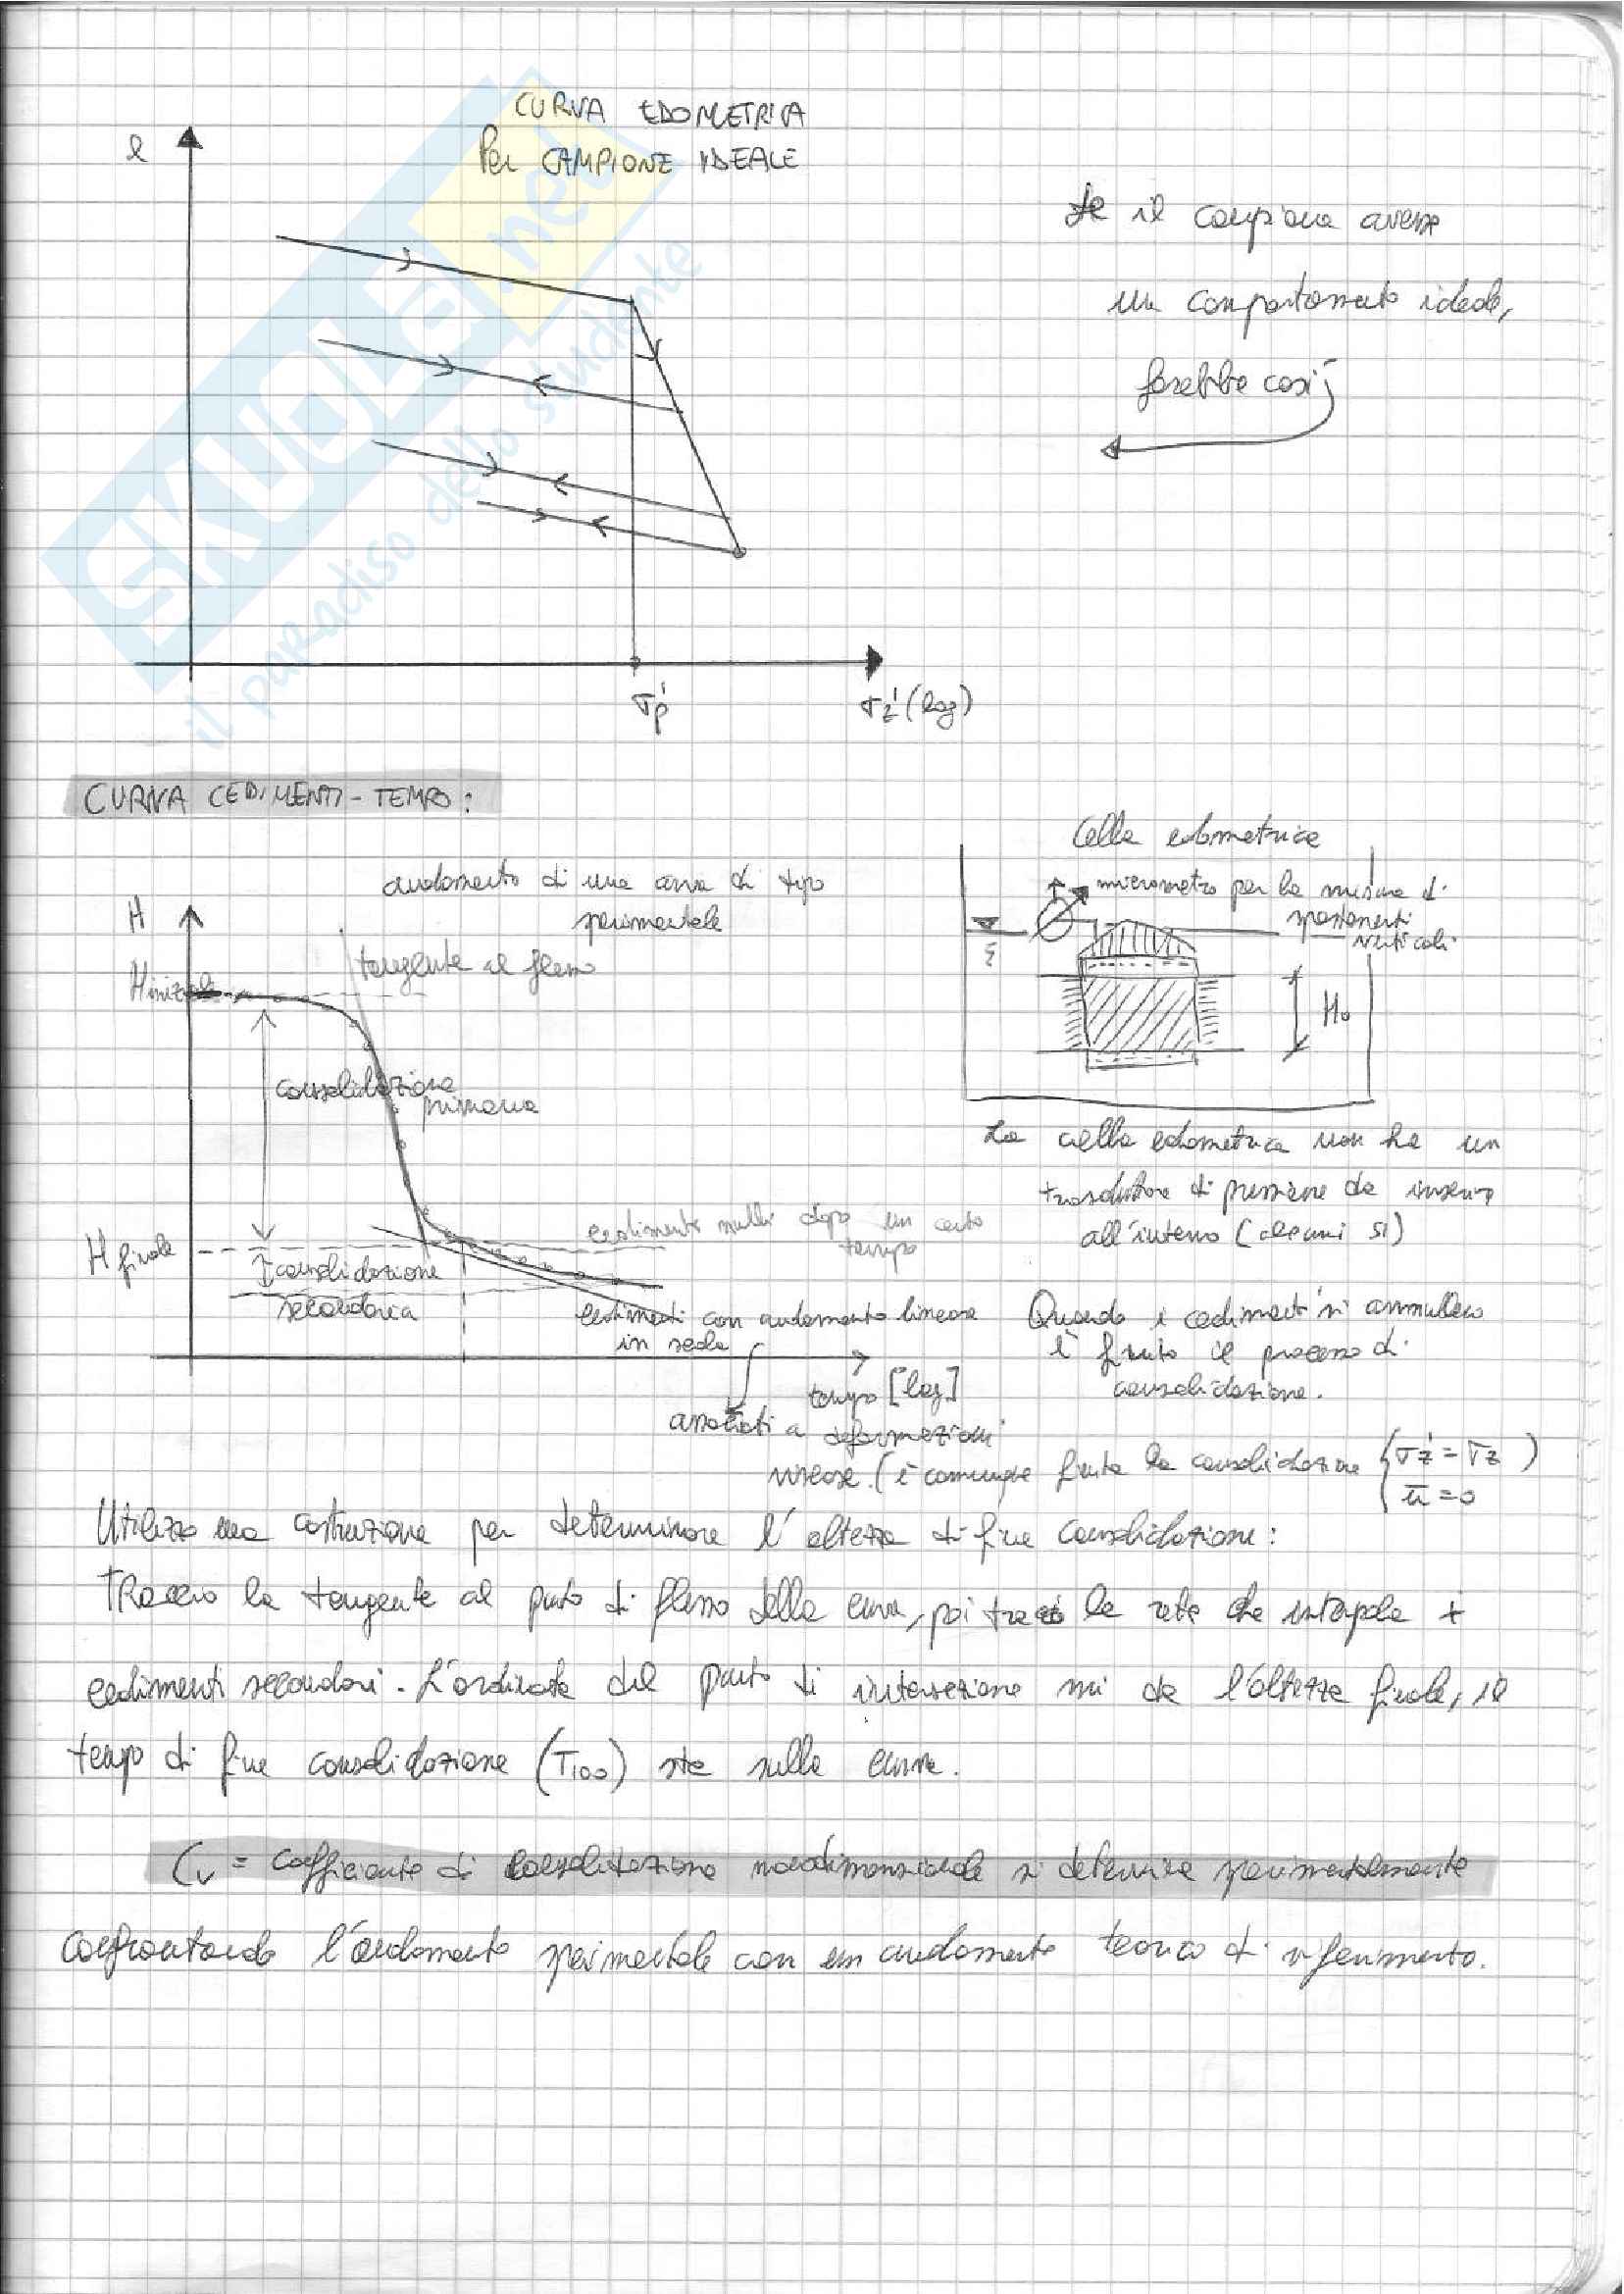 CURVA EDOMETRICA
Per CAMPIONE IDEALE
e
Se il campione avesse
un comportamento ideale,
farebbe così
σ'p
σz' (log)
SKUOLA.net
il paradiso dello studente
CURVA CEDIMENTI-TEMPO:
andamento di una curva di tipo
sperimentale
H
H iniziale
tangente al flesso
consolidazione
primaria
H finale
consolidazione
secondaria
cedimenti nulli dopo un certo
tempo
cedimenti con andamento lineare
in scala
tempo [log]
associati a deformazioni
viscose. (è comunque finita la consolidazione { σz' = σz )
ū = 0
Cella edometrica
micrometro per la misura di
spostamenti
verticali
H₀
La cella edometrica non ha un
trasduttore di pressione da inserire
all'interno (alcuni sì)
Quando i cedimenti si annullano
è finito il processo di
consolidazione.
Utilizzo una costruzione per determinare l'altezza di fine consolidazione:
Traccio la tangente al punto di flesso della curva, poi la retta che interpola i
cedimenti secondari. L'ordinata del punto di intersezione mi da l'altezza finale, il
tempo di fine consolidazione (T₁₀₀) sta sulla curva.
Cv = coefficiente di consolidazione monodimensionale si determina sperimentalmente
confrontando l'andamento sperimentale con un andamento teorico di riferimento.